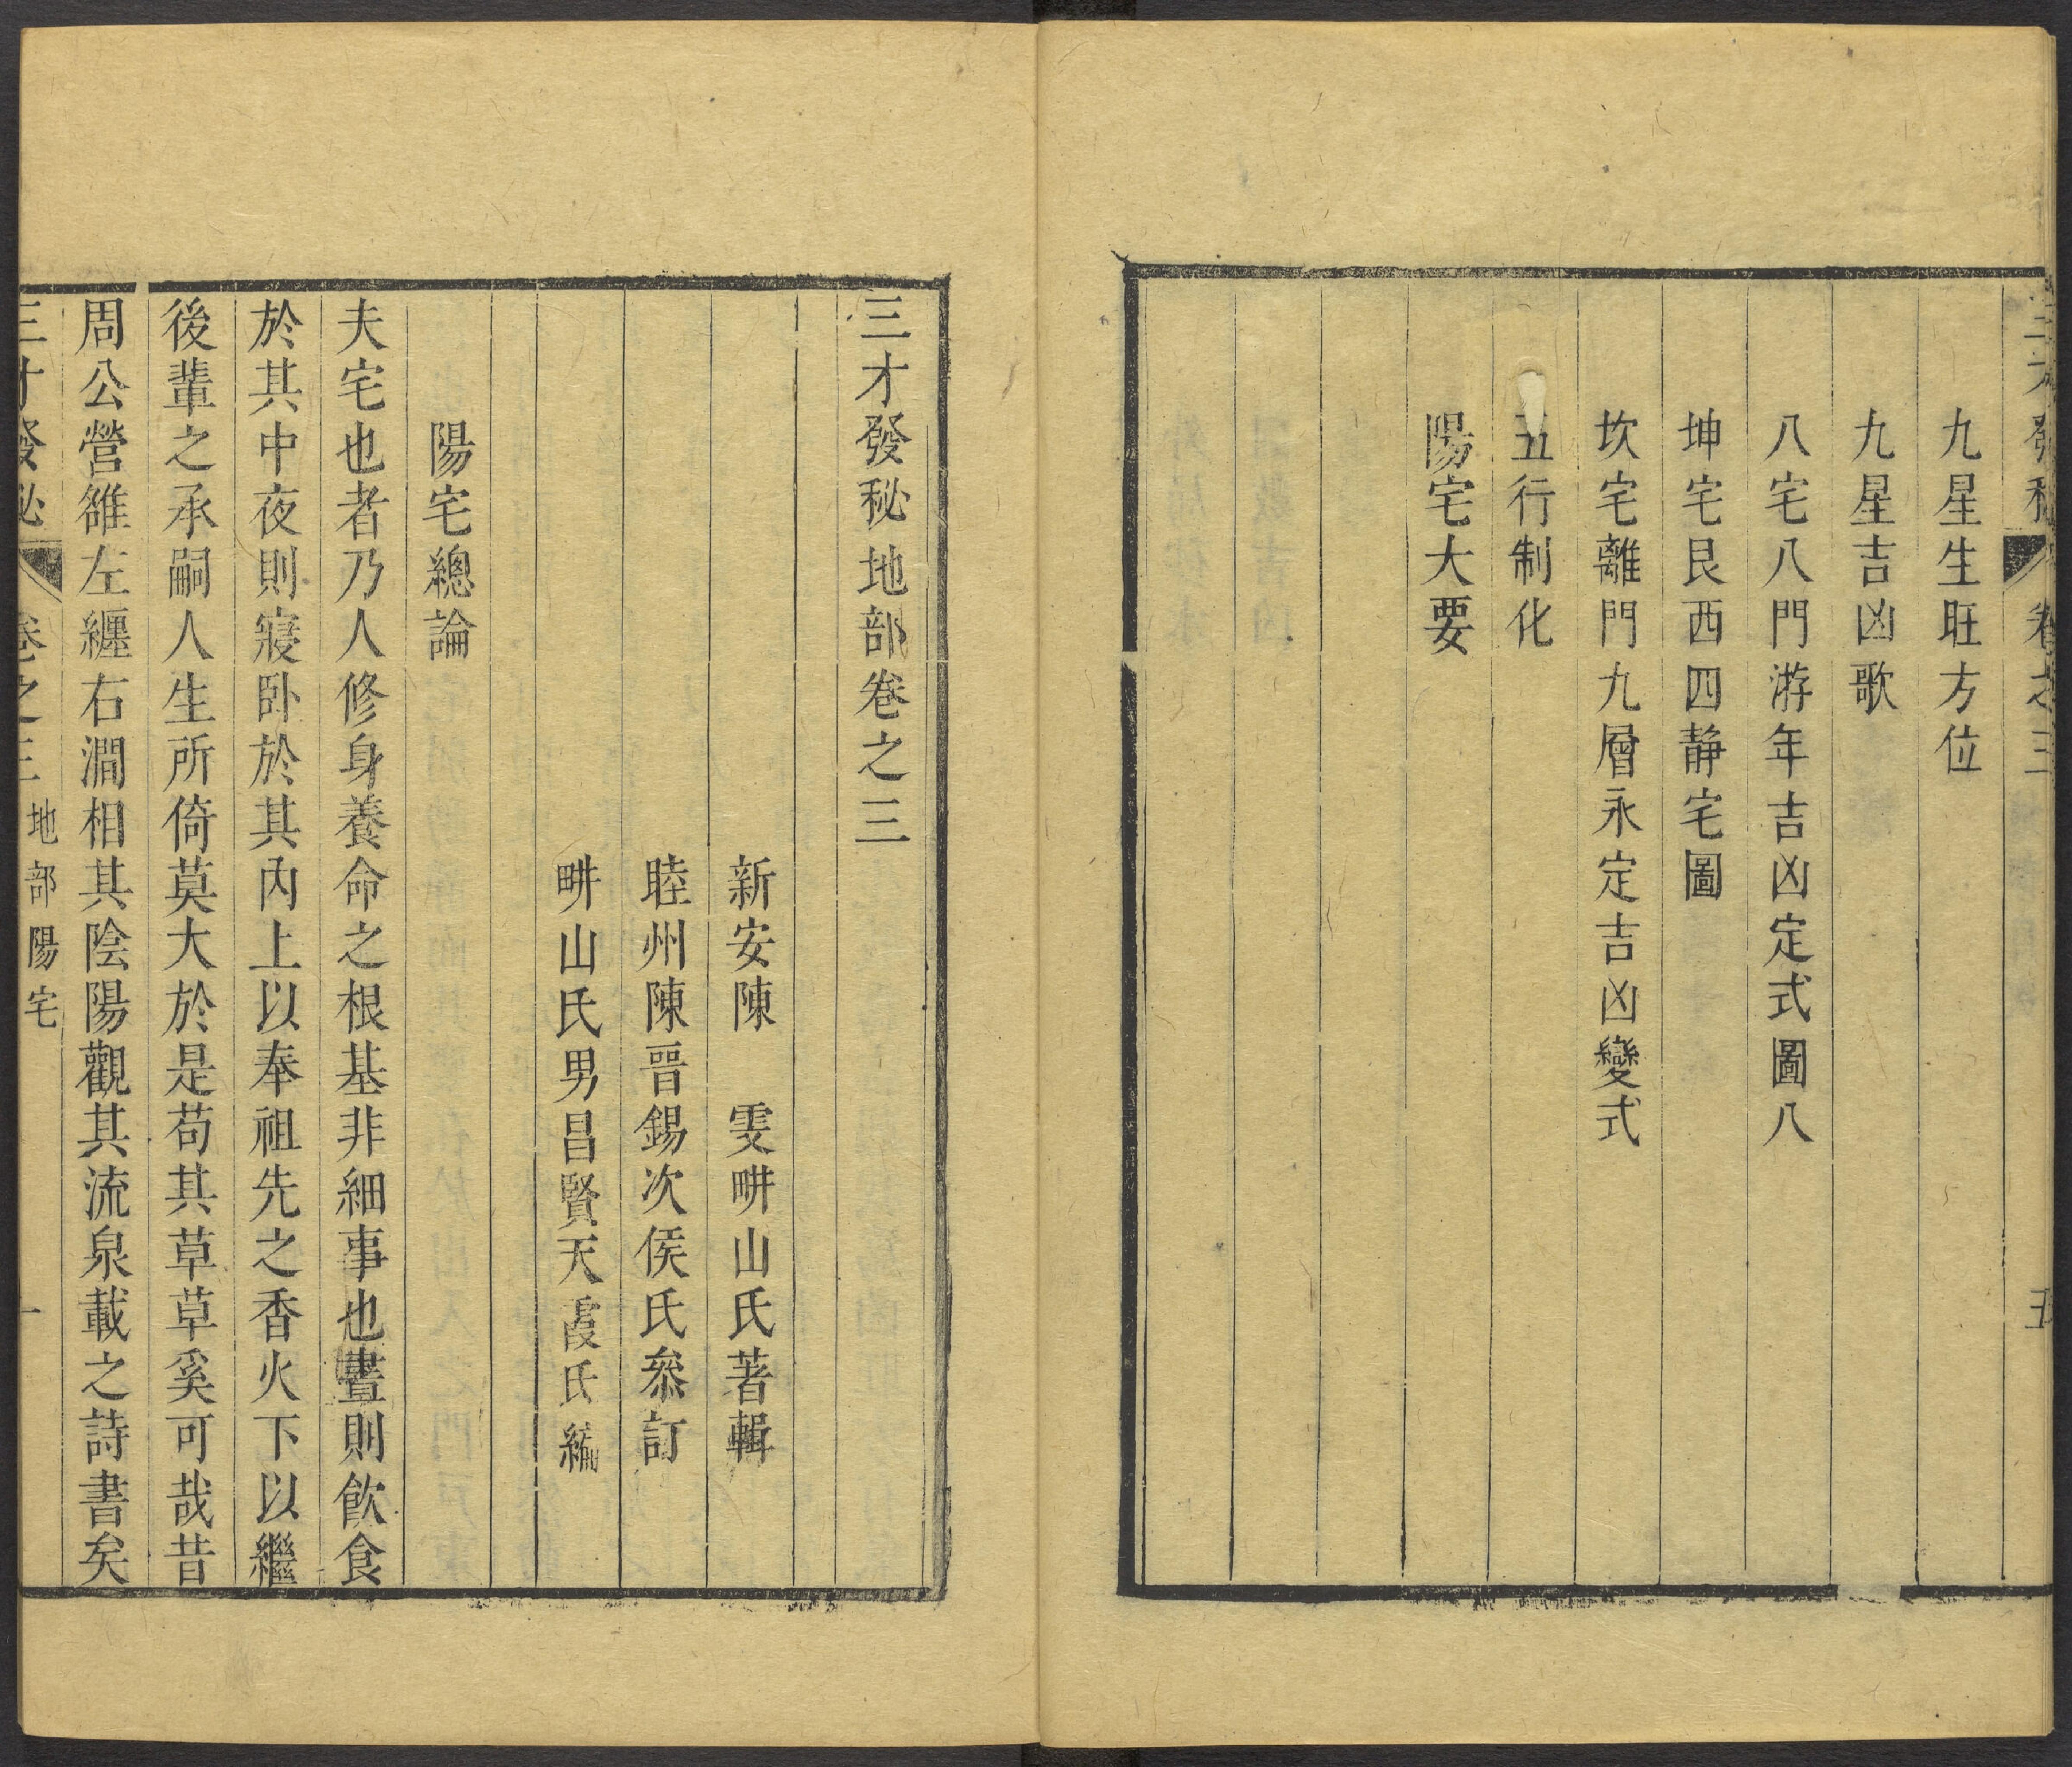 三才發秘 卷之三 五
九星生旺方位
九星吉凶歌
八宅八門游年吉凶定式圖八
坤宅艮西四静宅圖
坎宅離門九層永定吉凶變式
五行制化
陽宅大要
三才發秘地部卷之三
新安陳 雯畊山氏著輯
睦州陳晋錫次侯氏叅訂
畊山氏男昌賢天霞氏編
陽宅總論
夫宅也者乃人修身養命之根基非細事也晝則飲食
於其中夜則寢卧於其內上以奉祖先之香火下以繼
後輩之承嗣人生所倚莫大於是苟其草草奚可哉昔
周公營雒左纏右澗相其陰陽觀其流泉載之詩書矣
三才發秘 卷之三 地部陽宅 一